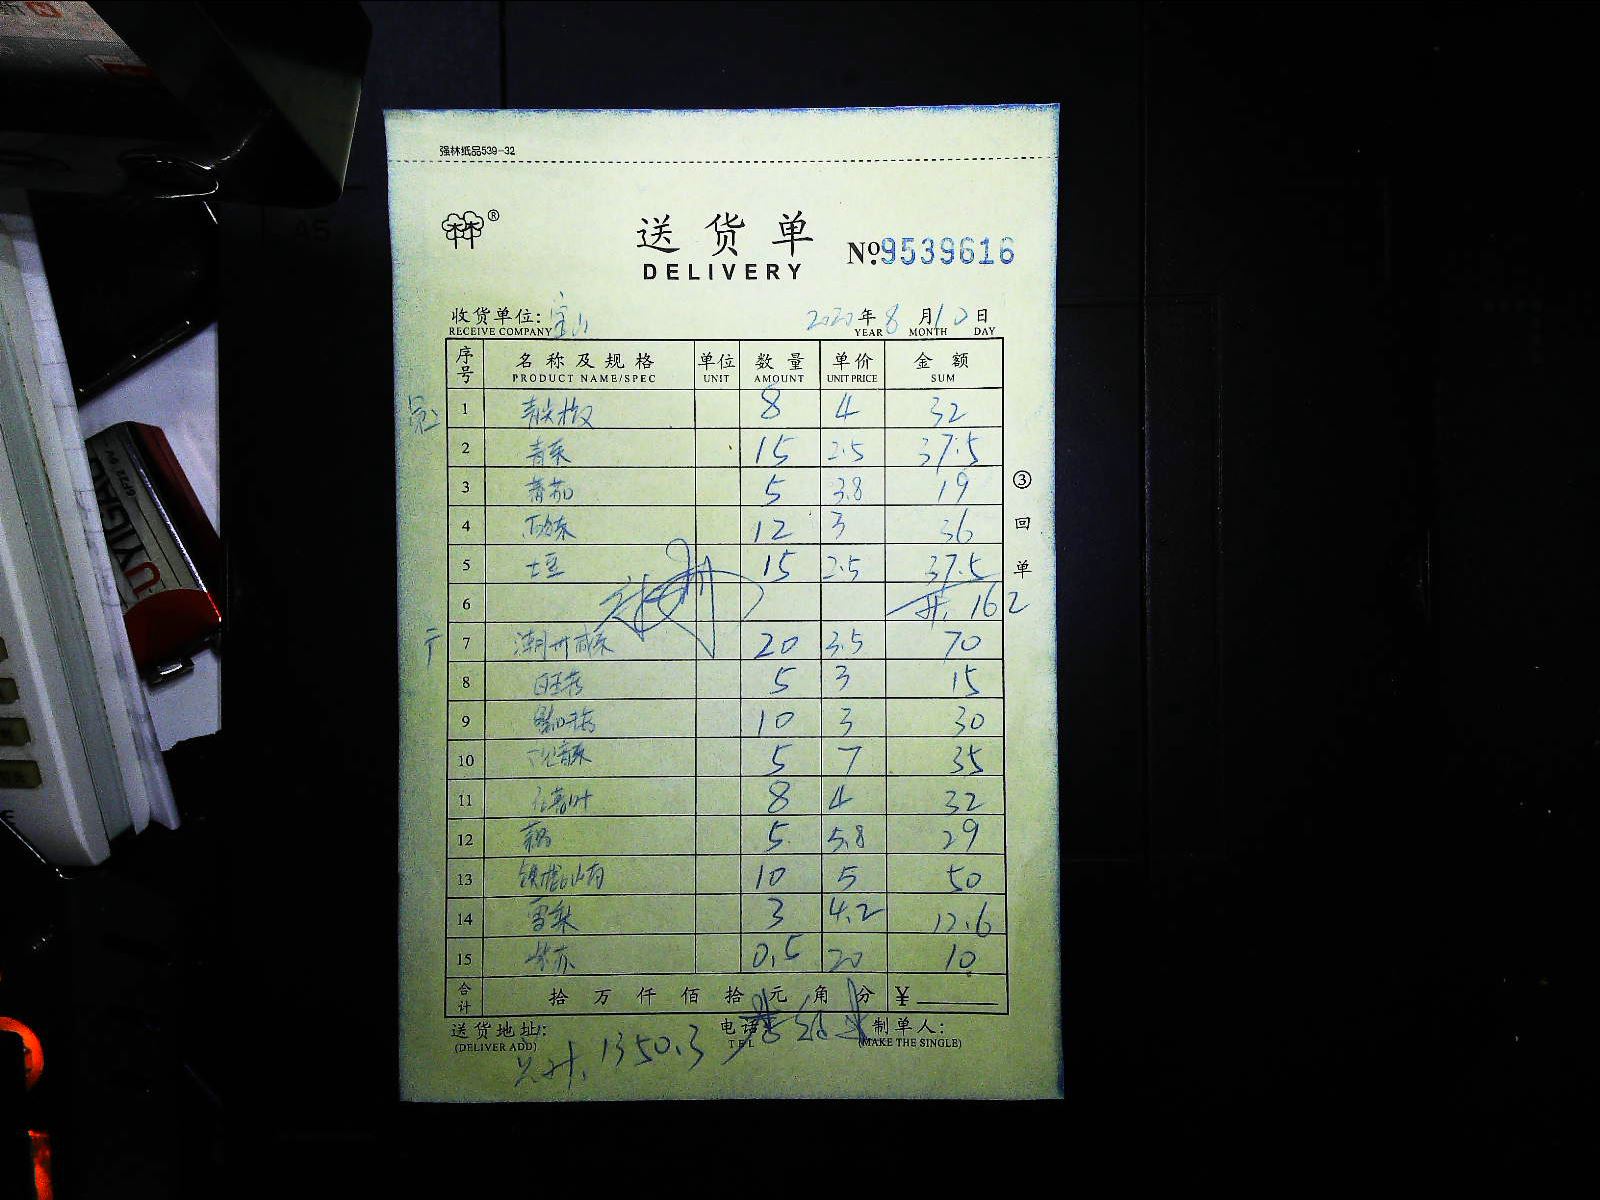 强林纸品539-32
林®
送货单
DELIVERY
No.9539616
收货单位: 宝山 2020年8月10日
RECEIVE COMPANY YEAR MONTH DAY
序号 名称及规格 单位 数量 单价 金额
PRODUCT NAME/SPEC UNIT AMOUNT UNIT PRICE SUM
1 青尖椒 8 4 32
2 青菜 15 2.5 37.5
3 蕃茄 5 3.8 19
4 12 3 36
5 土豆 15 2.5 37.5
6 共162
7 潮州咸菜 20 3.5 70
8 5 3 15
9 10 3 30
10 5 7 35
11 8 4 32
12 藕 5 5.8 29
13 铁棍山药 10 5 50
14 雪梨 3 4.2 12.6
15 紫苏 0.5 20 10
合计 拾万仟佰拾元角分 ¥
送货地址: 电话 制单人:
(DELIVER ADD) TEL (MAKE THE SINGLE)
共计 1350.3
③回单
A5